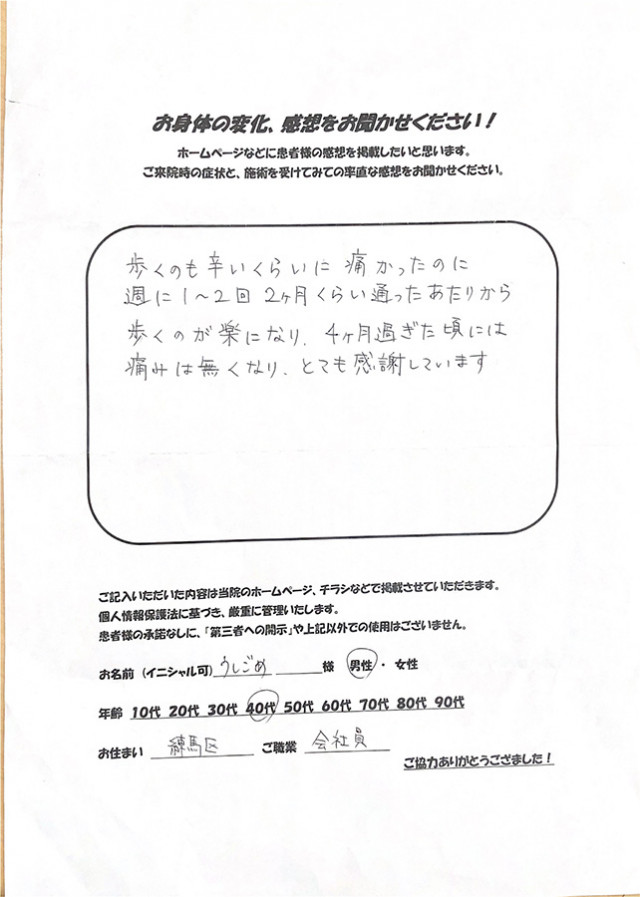 お身体の変化、感想をお聞かせください！
ホームページなどに患者様の感想を掲載したいと思います。
ご来院時の症状と、施術を受けてみての率直な感想をお聞かせください。
歩くのも辛いくらいに 痛かったのに
週に1〜2回 2ヶ月くらい通ったあたりから
歩くのが楽になり、4ヶ月過ぎた頃には
痛みは無くなり、とても感謝しています
ご記入いただいた内容は当院のホームページ、チラシなどで掲載させていただきます。
個人情報保護法に基づき、厳重に管理いたします。
患者様の承諾なしに、「第三者への開示」や上記以外での使用はございません。
お名前（イニシャル可）うしごめ 様 男性・女性
年齢 10代 20代 30代 40代 50代 60代 70代 80代 90代
お住まい 練馬区 ご職業 会社員
ご協力ありがとうござました！